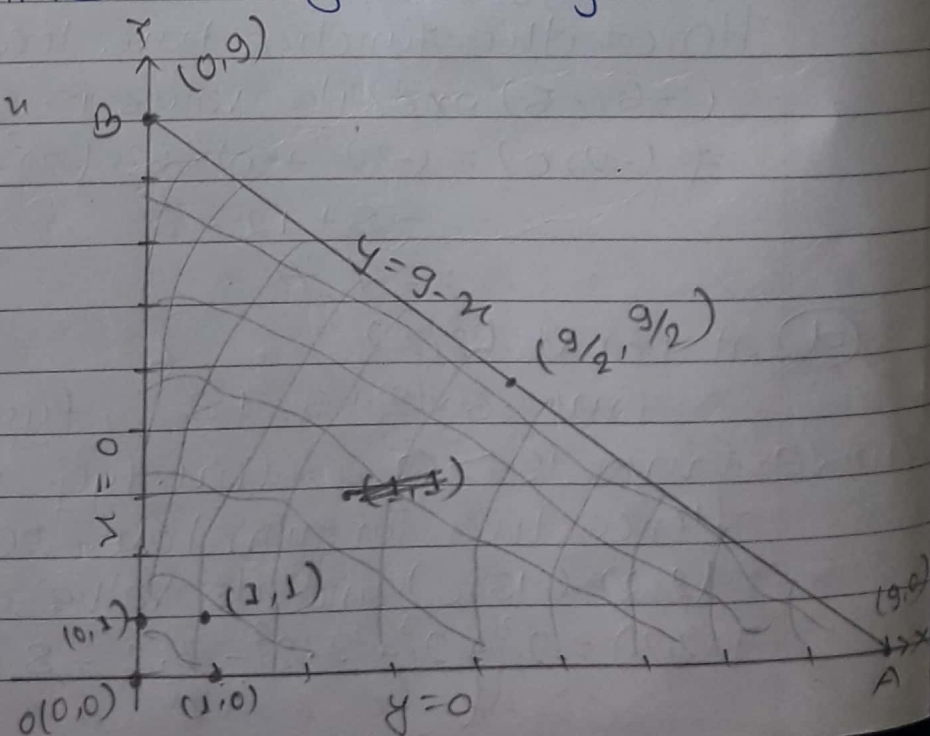 Y
(0,9)
x
B
y=9-x
(9/2, 9/2)
x=0
(1,1)
(0,1)
(9,0)
x
A
0(0,0)
(1,0)
y=0